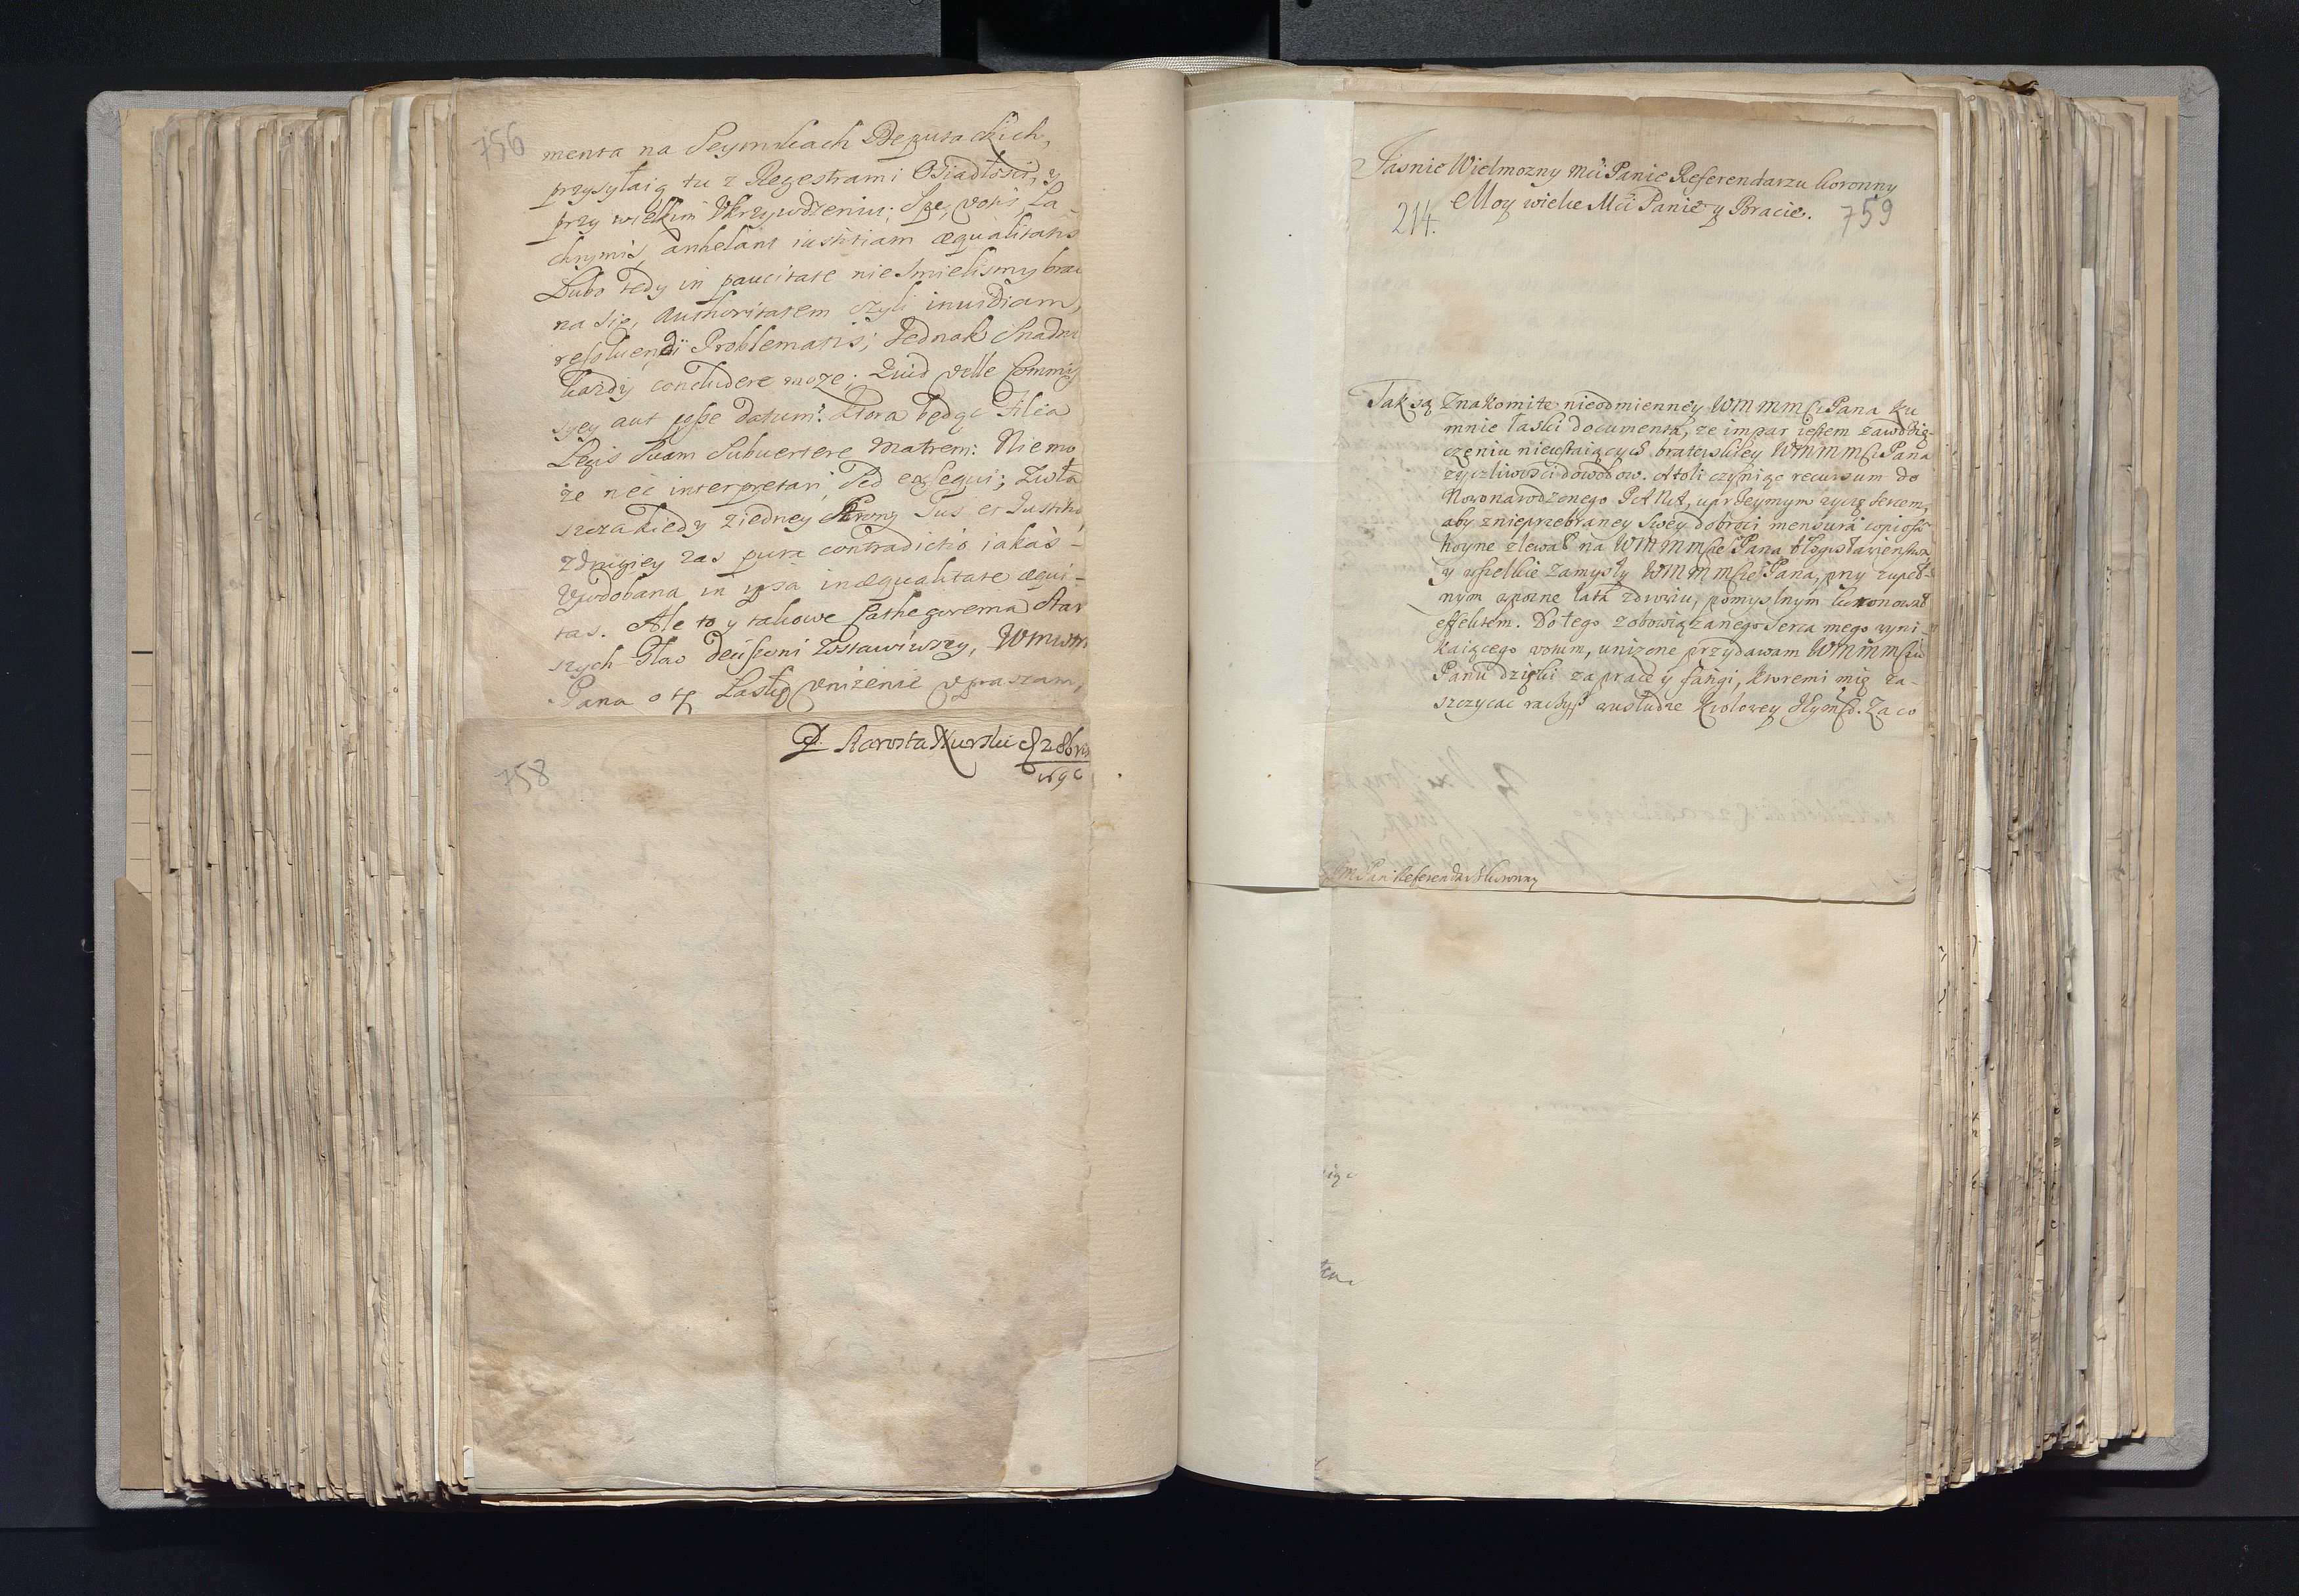 756
menta na Seymikach Deputackich,
przysyłaią tu z Regestrami Osiadłosci, y
przy wielkim Vkrzywdzeniu; Spe, votis, La-
chrymis, anhelant iustitiam æqualitatis
Lubo tedy in paucitate nie smielismy brac
na się, authoritatem czyli inuidiam,
resoluendi Problematis; Jednak snadno
kazdy concludere moze; Quid velle Commis
syey aut posse datum? Ktora będąc Filia
Legis Suam Subuertere Matrem: Niemo
ze nec interpretari, Sed exsequi; Zwła
szcza kiedy ziedney Strony Jus et Justitia,
zdrugiey zas pura contradictio iakas-
Vpodobana in ipsa inæqualitate æqui-
tas. Ale to y takowe Cathegorema Star
szych Głow decisioni zostawiwszy, Wmwm
Pana o tę Łaskę vniżenie vpraszam,
758
P. Starosta Nurski 8bris
169
Jasnie Wielmozny Mci Panie Referendarzu Koronny
Moy wielce Mci Panie y Bracie.
214.
759
Tak są Znakomite nieodmienney WMMMsci Pana ku
mnie łaski documenta, ze impar iestem zawdzię-
czeniu nieustaiących braterskiey WMMMsci Pana
zyczliwosci dowodow. Atoli czyniąc recursum do
Nowonarodzonego PANA, uprzeymym zyczę sercem,
aby znieprzebraney Swey dobroci mensurâ copiosâ
hoyne zlewał na WMMMsci Pana błogosławienstwa,
y wszelkie zamysły WMMMsci Pana, przy zupeł-
nym wpozne lata zdrowiu, pomyslnym koronował
effektem. Do tego zobowiązanego serca mego wyni-
kaiącego votum, unizone przydawam WMMMsci
Panu dzięki za prace y fatigi, ktoremi mię za-
szczycac raczysz wusłudze Krolowey JeyMsci. Za co
JM Pan Referendarz Koronny